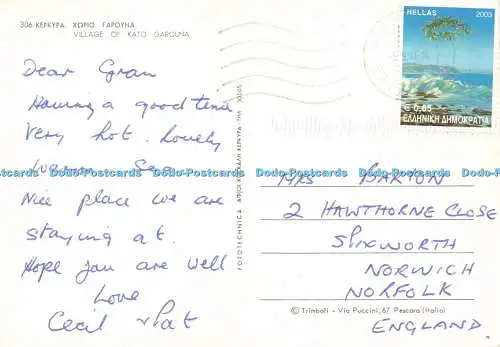 306 ΚΕΡΚΥΡΑ ΧΩΡΙΟ ΓΑΡΟΥΝΑ
VILLAGE OF KATO GAROUNA
Dear Gran
Having a good time
very hot. Lovely
warm Sea
Nice place we are
staying at.
Hope you are well
Love
Cecil & Pat
FOTOTECHNICA
HELLAS 2003
€ 0,65
ΕΛΛΗΝΙΚΗ ΔΗΜΟΚΡΑΤΙΑ
MRS BARTON
2 HAWTHORNE CLOSE
SPIXWORTH
NORWICH
NORFOLK
ENGLAND
© Trimboli - Via Puccini, 67 Pescara (Italia)
Dodo-Postcards Dodo-Postcards Dodo-Postcards Dodo-Postcards